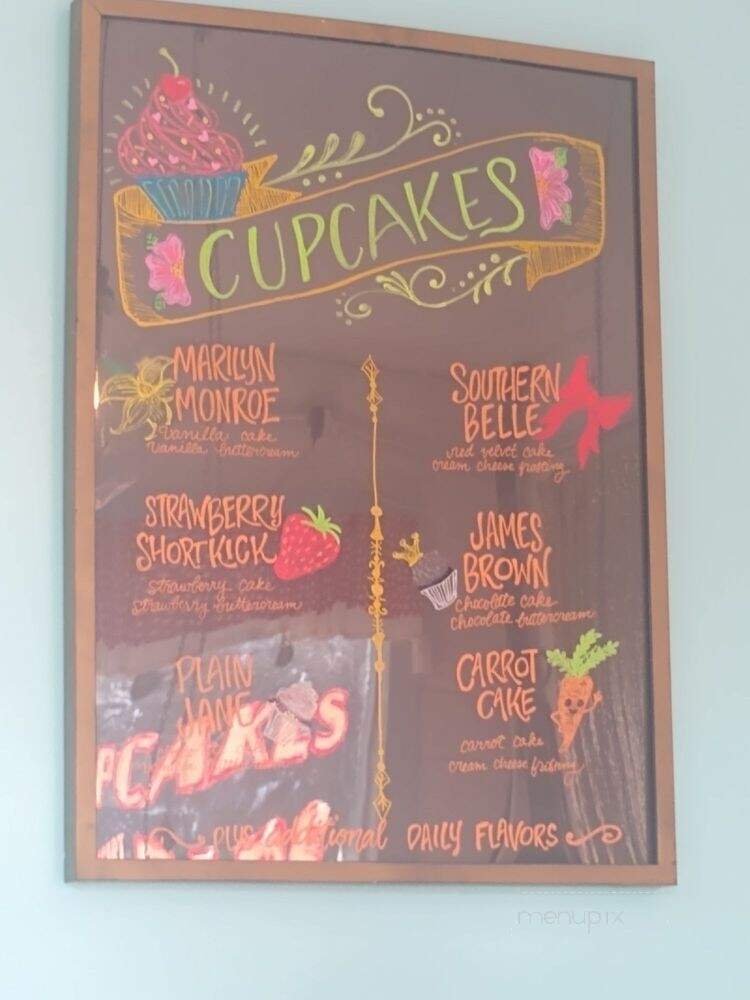 CUPCAKES
MARILYN
MONROE
Vanilla cake
Vanilla buttercream
STRAWBERRY
SHORTKICK
Strawberry cake
Strawberry buttercream
PLAIN
JANE
SOUTHERN
BELLE
red velvet cake
cream cheese frosting
JAMES
BROWN
chocolate cake
chocolate buttercream
CARROT
CAKE
carrot cake
cream cheese frosting
PLUS additional DAILY FLAVORS
PCAKES
menupix